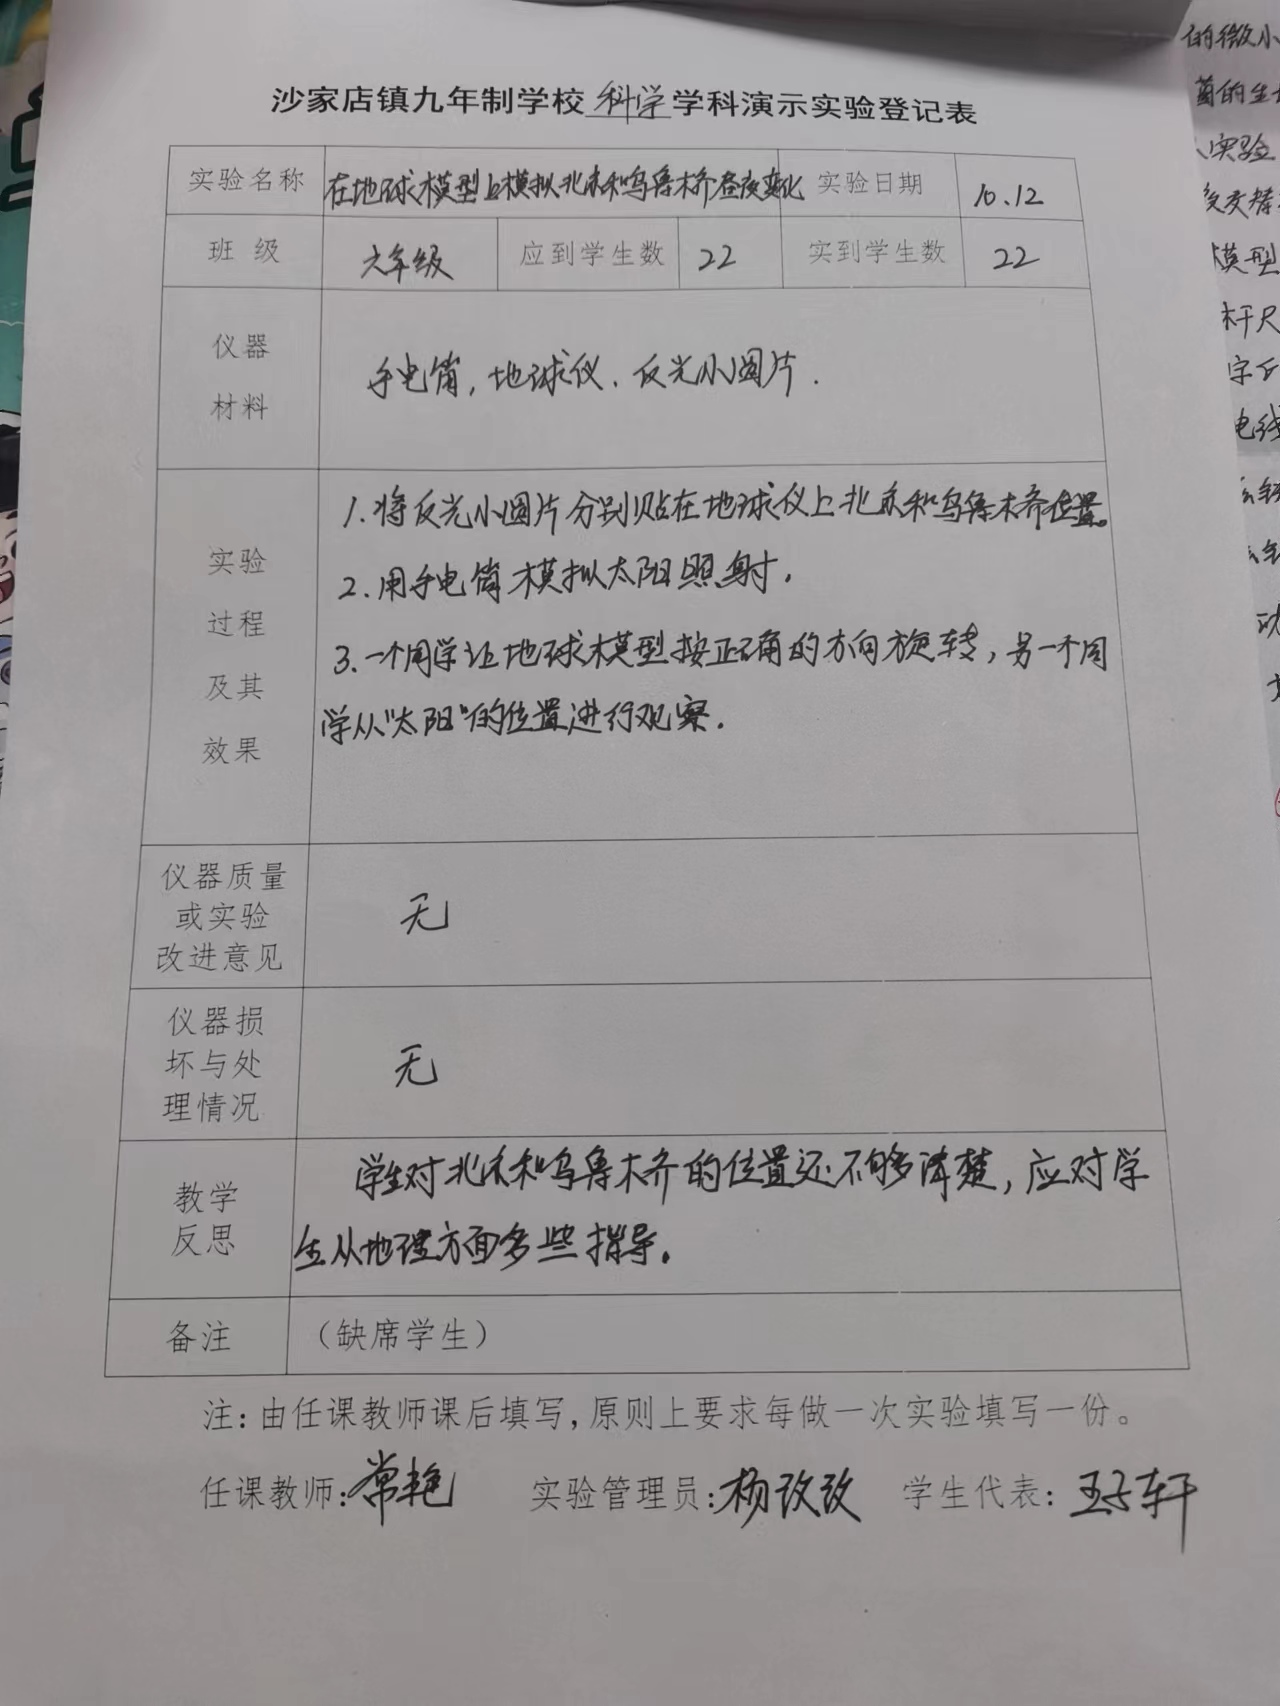 沙家店镇九年制学校科学学科演示实验登记表
实验名称 在地球模型上模拟北京和乌鲁木齐昼夜变化 实验日期 10.12
班 级 六年级 应到学生数 22 实到学生数 22
仪器
材料
手电筒，地球仪、反光小圆片.
实验
过程
及其
效果
1.将反光小圆片分别贴在地球仪上北京和乌鲁木齐位置。
2.用手电筒模拟太阳照射.
3.一个同学让地球模型按正确的方向旋转，另一个同
学从"太阳"的位置进行观察.
仪器质量
或实验
改进意见
无
仪器损
坏与处
理情况
无
教学
反思
学生对北京和乌鲁木齐的位置还不够清楚，应对学
生从地理方面多些指导。
备注 （缺席学生）
注：由任课教师课后填写，原则上要求每做一次实验填写一份。
任课教师：常艳 实验管理员：杨改改 学生代表：王子轩
的微小
菌的生
实验
模型
杆尺
电线